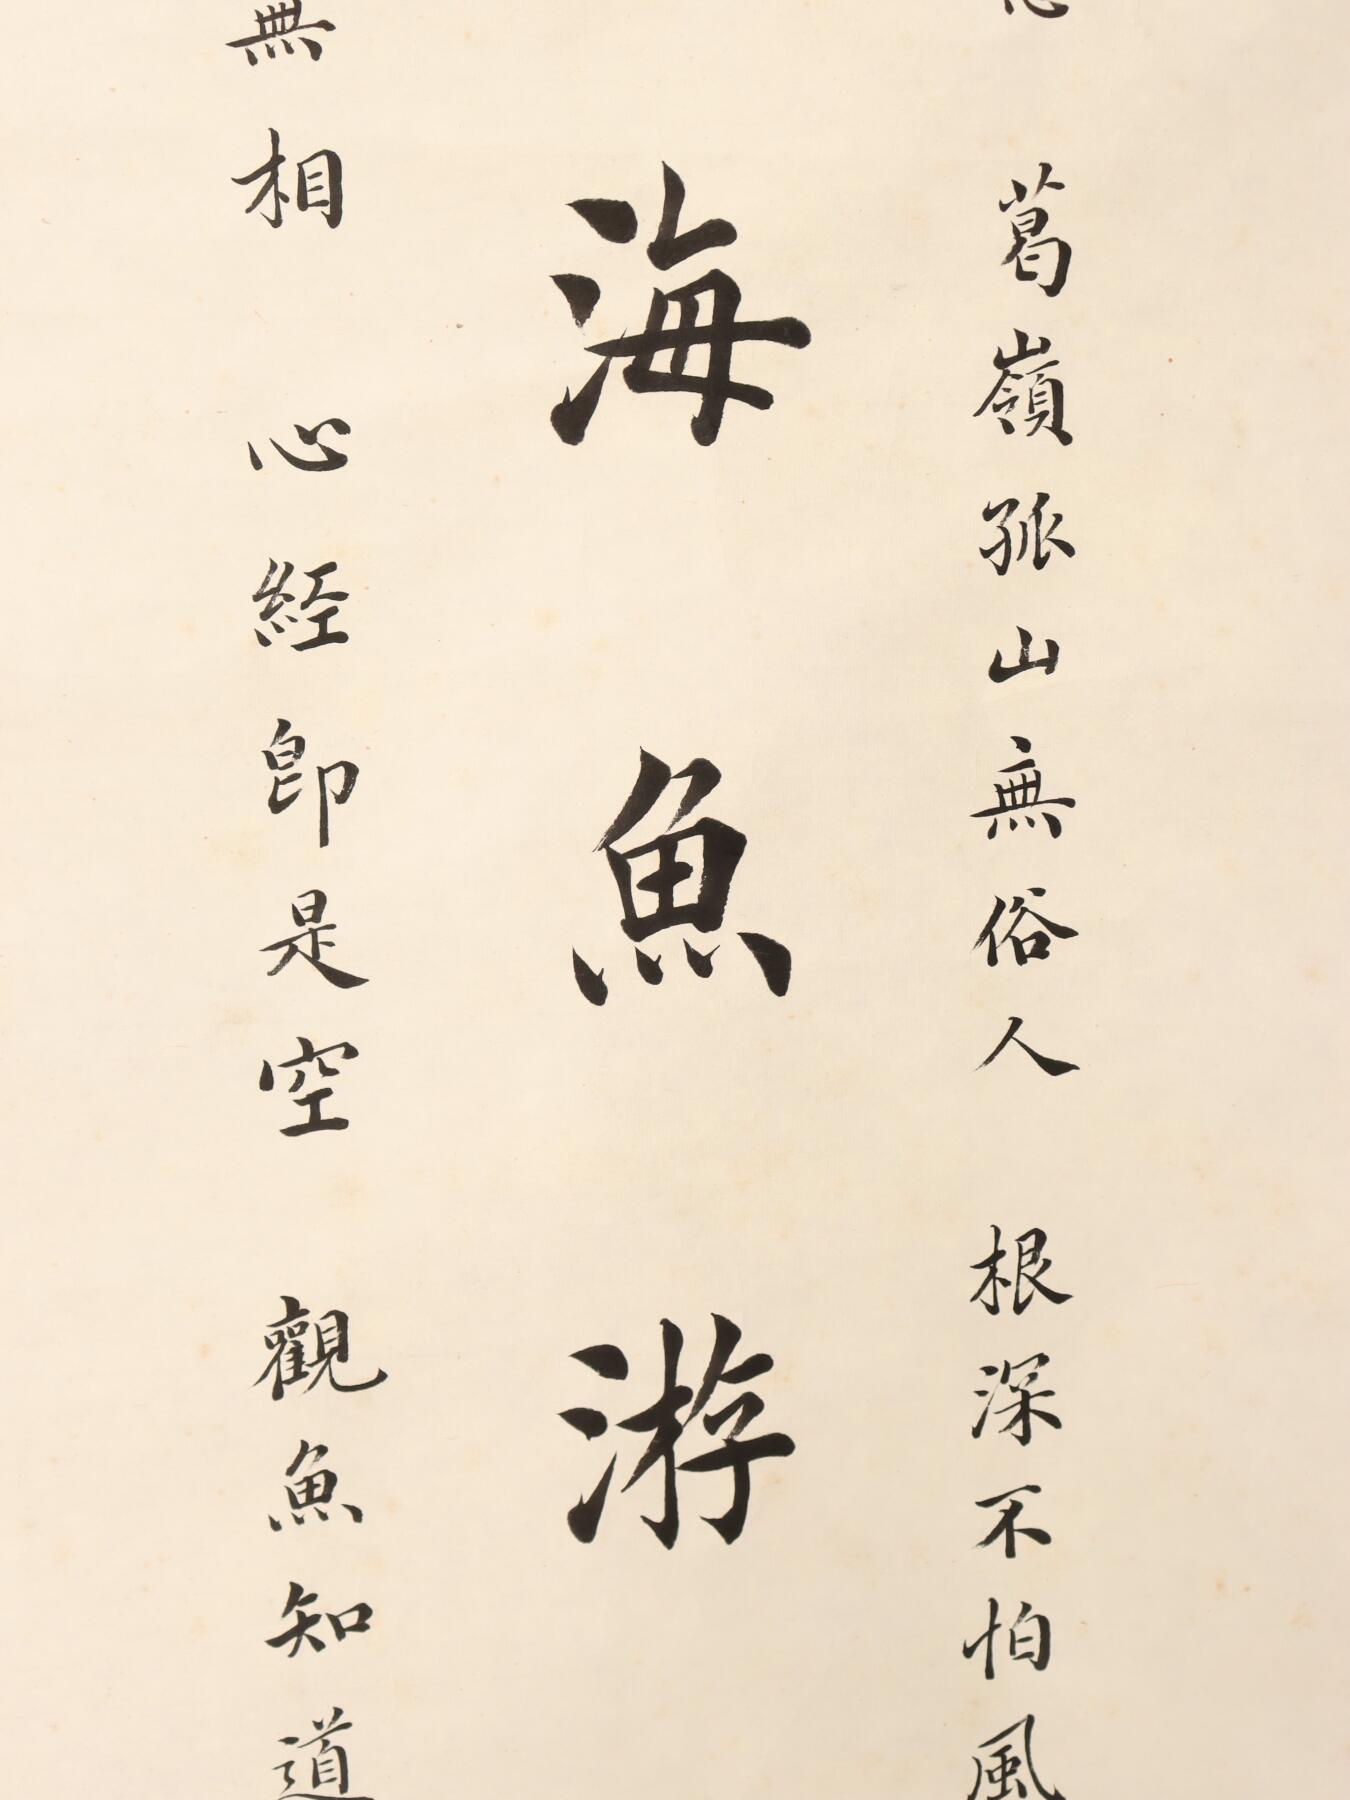 葛嶺孤山無俗人　根深不怕風
海魚游
無相　心経即是空　觀魚知道